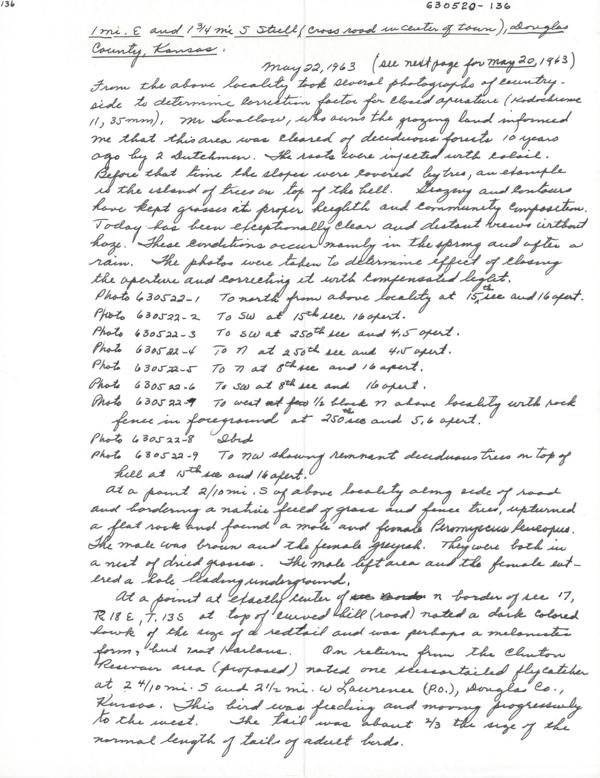 136
630520-136
1 mi. E and 1 3/4 mi S Stull (cross road in center of town), Douglas
County, Kansas.
May 22, 1963 (see next page for May 20, 1963)
From the above locality took several photographs of country-
side to determine correction factor for closed aperature (Kodochrome
II, 35mm). Mr Swallow, who owns the grazing land informed
me that this area was cleared of deciduous forests 10 years
ago by 2 Dutchmen. The roots were injected with
Before that time the slopes were covered by tree, an example
is the island of trees on top of the hill. Grazing and contours
have kept grasses at proper heighth and community composition.
Today has been exceptionally clear and distant views without
haze. These conditions occur mainly in the spring and after a
rain. The photos were taken to determine effect of closing
the aperture and correcting it with compensated light.
Photo 630522-1 To north from above locality at 15th sec and 16 apert.
Photo 630522-2 To SW at 15th sec. 16 apert.
Photo 630522-3 To SW at 250th sec and 4.5 apert.
Photo 630522-4 To N at 250th sec and 4.5 apert.
Photo 630522-5 To N at 8th sec and 16 apert.
Photo 630522-6 To SW at 8th sec and 16 apert.
Photo 630522-7 To west 1/2 block N above locality with rock
fence in foreground at 250th sec and 5.6 apert.
Photo 630522-8 Ibid
Photo 630522-9 To NW showing remnant deciduous trees on top of
hill at 15th sec and 16 apert.
At a point 2/10 mi. S of above locality along side of road
and bordering a native field of grass and fence trees, upturned
a flat rock and found a male and female Peromyscus leucopus.
The male was brown and the female greyish. They were both in
a nest of dried grasses. The male left area and the female ent-
ered a hole leading underground.
At a point at exactly center of N border of sec 17,
R. 18 E, T. 13 S at top of curved hill (road) noted a dark colored
hawk of the size of a redtail and was perhaps a melanistic
form, but not Harlans. On return from the Clinton
Resevoir area (proposed) noted one scissortailed flycatcher
at 2 4/10 mi. S and 2 1/2 mi. W Lawrence (P.O.), Douglas Co.,
Kansas. This bird was feeding and moving progressively
to the west. The tail was about 2/3 the size of the
normal length of tails of adult birds.